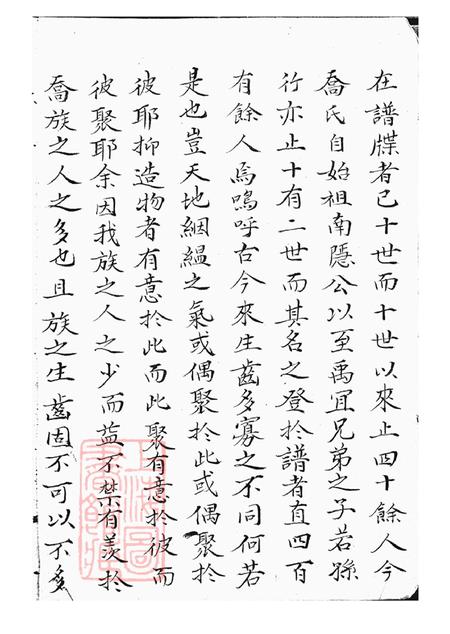 在譜牒者已十世而十世以來止四十餘人今
喬氏自始祖南隱公以至禹宜兄弟之子若孫
行亦止十有二世而其名之登於譜者直四百
有餘人焉嗚呼古今來生齒多寡之不同何若
是也豈天地絪縕之氣或偶聚於此或偶聚於
彼耶抑造物者有意於此而此聚有意於彼而
彼聚耶余因我族之人之少而益不禁有羨於
喬族之人之多也且族之生齒固不可以不多
上海圖
書館藏